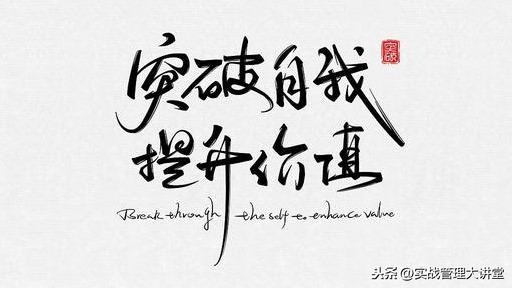 突破自我
突破
提升价值
Break through the self to enhance value
头条@实战管理大讲堂